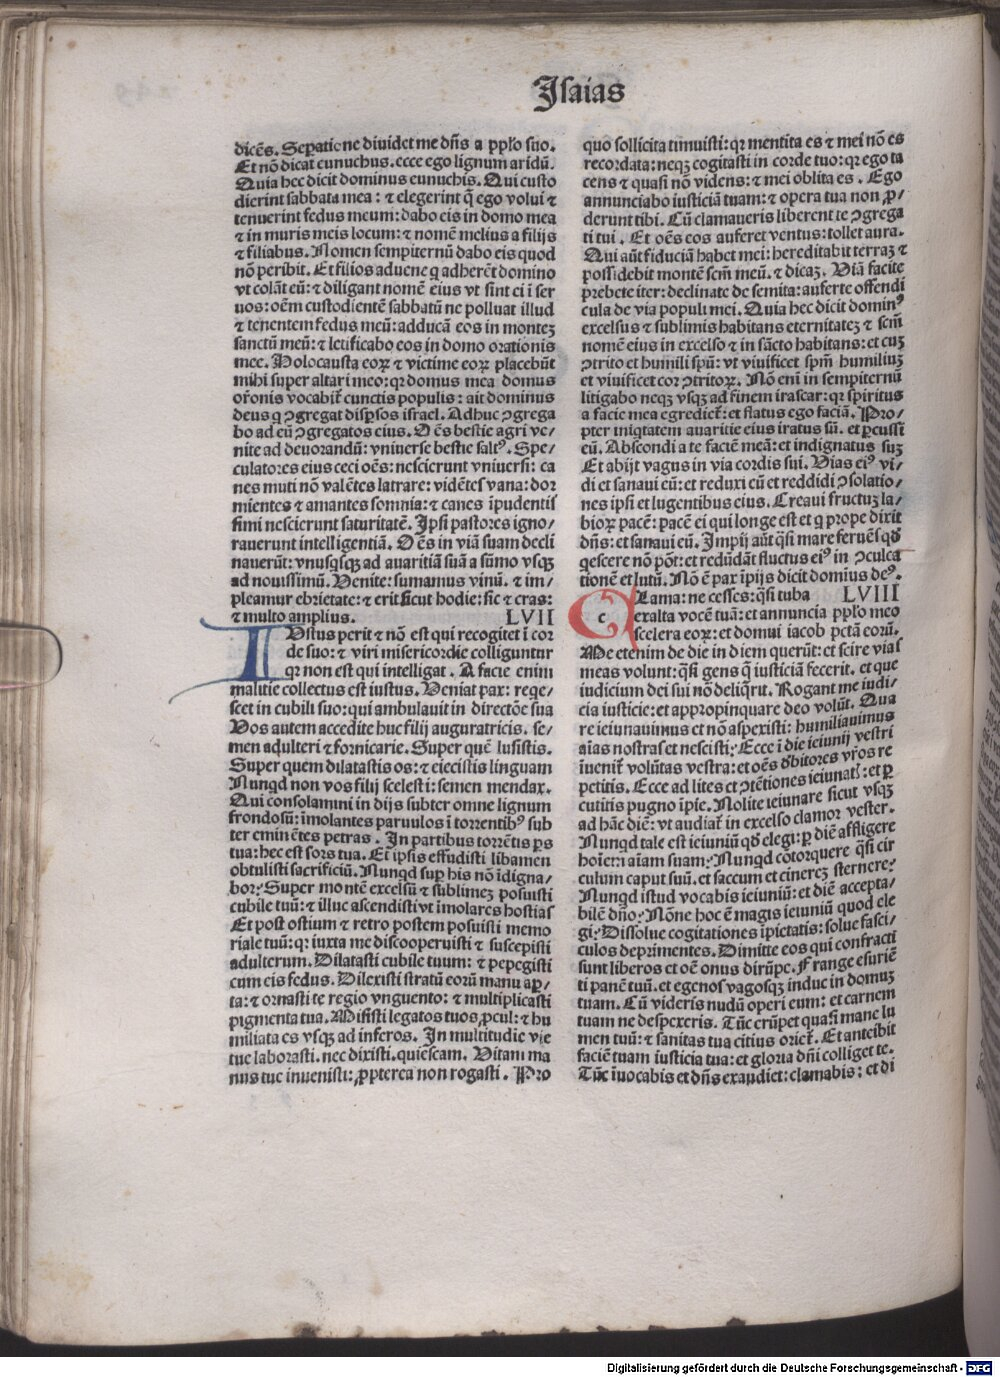 Isaias
dicēs. Seꝑatiōe diuidet me dn̄s a ppl̄o suo.
Et nō dicat eunuchus. ecce ego lignum aridū.
Quia hec dicit dominus eunuchis. Qui custo
dierint sabbata mea: ⁊ elegerint q̄ ego volui ⁊
tenuerint fedus meum: dabo eis in domo mea
⁊ in muris meis locum: ⁊ nomē melius a filijs
⁊ filiabus. Nomen sempiternū dabo eis quod
nō peribit. Et filios aduene q adherēt domino
vt colāt eū: ⁊ diligant nomē eius vt sint ei ī ser
uos: oēm custodientē sabbatū ne polluat illud
⁊ tenentem fedus meū: adducā eos in monteꝫ
sanctū meū: ⁊ letificabo eos in domo orationis
mee. Holocausta eoꝝ ⁊ victime eoꝝ placebūt
mihi super altari meo: qꝛ domus mea domus
or̄onis vocabit᷑ cunctis populis: ait dominus
deus q ꝯgregat disꝑsos israel. Adhuc ꝯgrega
bo ad eū ꝯgregatos eius. Oēs bestie agri ve/
nite ad deuorandū: vniuerse bestie salt⁹. Spe/
culatores eius ceci oēs: nescierunt vniuersi: ca
nes muti nō valētes latrare: vidētes vana: dor
mientes ⁊ amantes somnia: ⁊ canes īpudentis
simi nescierunt saturitatē. Ipsi pastores igno/
rauerunt intelligentiā. Oēs in viā suam decli
nauerūt: vnusqsqꝫ ad auaritiā suā a sūmo vsqꝫ
ad nouissimū. Venite: sumamus vinū. ⁊ im/
pleamur ebrietate: ⁊ erit sicut hodie: sic ⁊ cras:
⁊ multo amplius. LVII
IVstus perit ⁊ nō est qui recogitet ī cor
de suo: ⁊ viri misericordie colliguntur
qꝛ non est qui intelligat. A facie enim
malitie collectus est iustus. Veniat pax: reqe/
scet in cubili suo: qui ambulauit in directōe sua
Vos autem accedite huc filij auguratricis. se/
men adulteri ⁊ fornicarie. Super quē lusistis.
Super quem dilatastis os: ⁊ eiecistis linguam
Nunqd non vos filij scelesti: semen mendax.
Qui consolamini in dijs subter omne lignum
frondosū: īmolantes paruulos ī torrentib⁹ sub
ter eminētes petras. In partibus torrētis ꝑs
tua: hec est sors tua. Et ipsis effudisti libamen
obtulisti sacrificiū. Nunqd suꝑ his nō īdigna/
bor? Super montē excelsū ⁊ sublimeꝫ posuisti
cubile tuū: ⁊ illuc ascendisti vt īmolares hostias
Et post ostium ⁊ retro postem posuisti memo
riale tuū: q: iuxta me discooperuisti ⁊ suscepisti
adulterum. Dilatasti cubile tuum: ⁊ pepegisti
cum eis fedus. Dilexisti stratū eorū manu aꝑ/
ta: ⁊ ornasti te regio vnguento: ⁊ multiplicasti
pigmenta tua. Misisti legatos tuos ꝓcul: ⁊ hu
miliata es vsqꝫ ad inferos. In multitudie vie
tue laborasti. nec dixisti. quiescam. Vitam ma
nus tue inuenisti: ꝓpterea non rogasti. Pro
quo sollicita timuisti: qꝛ mentita es ⁊ mei nō es
recordata: neqꝫ cogitasti in corde tuo: qꝛ ego ta
cens ⁊ quasi nō videns: ⁊ mei oblita es. Ego
annunciabo iusticiā tuam: ⁊ opera tua non ꝓ/
derunt tibi. Cū clamaueris liberent te ꝯgrega
ti tui. Et oēs eos auferet ventus: tollet aura.
Qui aūt fiduciā habet mei: hereditabit terraꝫ ⁊
possidebit montē scm̄ meū. ⁊ dicaꝫ. Viā facite
prebete iter: declinate de semita: auferte offendi
cula de via populi mei. Quia hec dicit domin⁹
excelsus ⁊ sublimis habitans eternitateꝫ ⁊ scm̄
nomē eius in excelso ⁊ in sācto habitans: et cuꝫ
ꝯtrito et humili spū: vt viuificet spm̄ humiliuꝫ
et viuificet cor ꝯtritoꝝ. Nō enī in sempiternū
litigabo neqꝫ vsqꝫ ad finem irascar: qꝛ spiritus
a facie mea egrediet᷑: et flatus ego faciā. Pro/
pter iniqtatem auaritie eius iratus sū. et ꝑcussi
eū. Abscondi a te faciē meā: et indignatus suꝫ
Et abijt vagus in via cordis sui. Vias ei⁹ vi/
di et sanaui eū: et reduxi eū et reddidi ꝯsolatio/
nes ipsi et lugentibus eius. Creaui fructuꝫ la/
bioꝝ pacē: pacē ei qui longe est et q prope dixit
dn̄s: et sanaui eū. Impij aūt qsi mare feruēs qd̄
qescere nō pōt: et redūdāt fluctus ei⁹ in ꝯculca
tionē et lutū. Nō ē pax īpijs dicit domīus de⁹.
cLama: ne cesses: qsi tuba LVIII
exalta vocē tuā: et annuncia ppl̄o meo
scelera eoꝝ: et domui iacob pctā eorū.
Me etenim de die in diem querūt: et scire vias
meas volunt: qsi gens q iusticiā fecerit. et que
iudicium dei sui nō deliqrit. Rogant me iudi/
cia iusticie: et appropinquare deo volūt. Qua
re ieiunauimus et nō aspexisti: humiliauimus
aīas nostras et nescisti? Ecce ī die ieiunij vestri
īuenit᷑ volūtas vestra: et oēs d̄bitores vr̄os re
petitis. Ecce ad lites et ꝯtētiones ieiunat᷑: et ꝑ
cutitis pugno īpie. Nolite ieiunare sicut vsqꝫ
ad hāc diē: vt audiat᷑ in excelso clamor vester.
Nunqd tale est ieiuniū qd̄ elegi: ꝑ diē affligere
hoīem aīam suam? Nunqd cōtorquere qsi cir
culum caput suū. et saccum et cinereꝫ sternere?
Nunqd istud vocabis ieiuniū: et diē accepta/
bilē dn̄o? Nōne hoc ē magis ieiuniū quod ele
gi? Dissolue cogitationes īpietatis: solue fasci/
culos deprimentes. Dimitte eos qui confracti
sunt liberos et oē onus dirūpe. Frange esuriē
ti panē tuū. et egenos vagosqꝫ induc in domuꝫ
tuam. Cū videris nudū operi eum: et carnem
tuam ne despexeris. Tūc erūpet quasi mane lu
men tuū: ⁊ sanitas tua citius oriet᷑. Et anteibit
faciē tuam iusticia tua: et gloria dn̄i colliget te.
Tūc īuocabis et dn̄s exaudiet: clamabis: et di
Digitalisierung gefördert durch die Deutsche Forschungsgemeinschaft - DFG